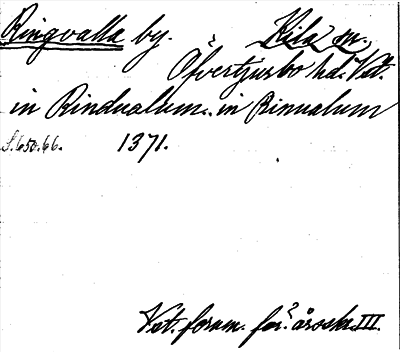 Ringvalla by. Kila sn.
Öfvertjurbo hd. Vstl.
in Rindualum. in Rinualum
1371.
Vst. fornm. för:s årsskr. III.